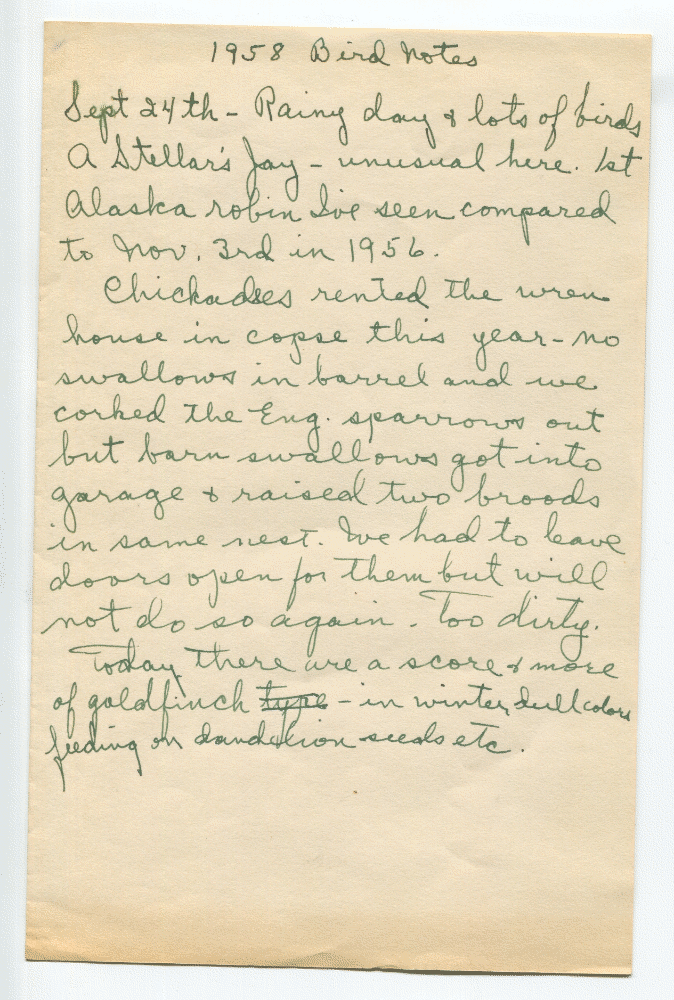 1958 Bird Notes
Sept 24th - Rainy day & lots of birds
A Stellar's Jay - unusual here. 1st
Alaska robin I've seen compared
to Nov. 3rd in 1956.
Chickadees rented the wren
house in copse this year - no
swallows in barrel and we
corked the Eng. sparrows out
but barn swallows got into
garage & raised two broods
in same nest. We had to leave
doors open for them but will
not do so again. Too dirty.
Today there are a score & more
of goldfinch type - in winter dull colors
feeding on dandelion seeds etc.